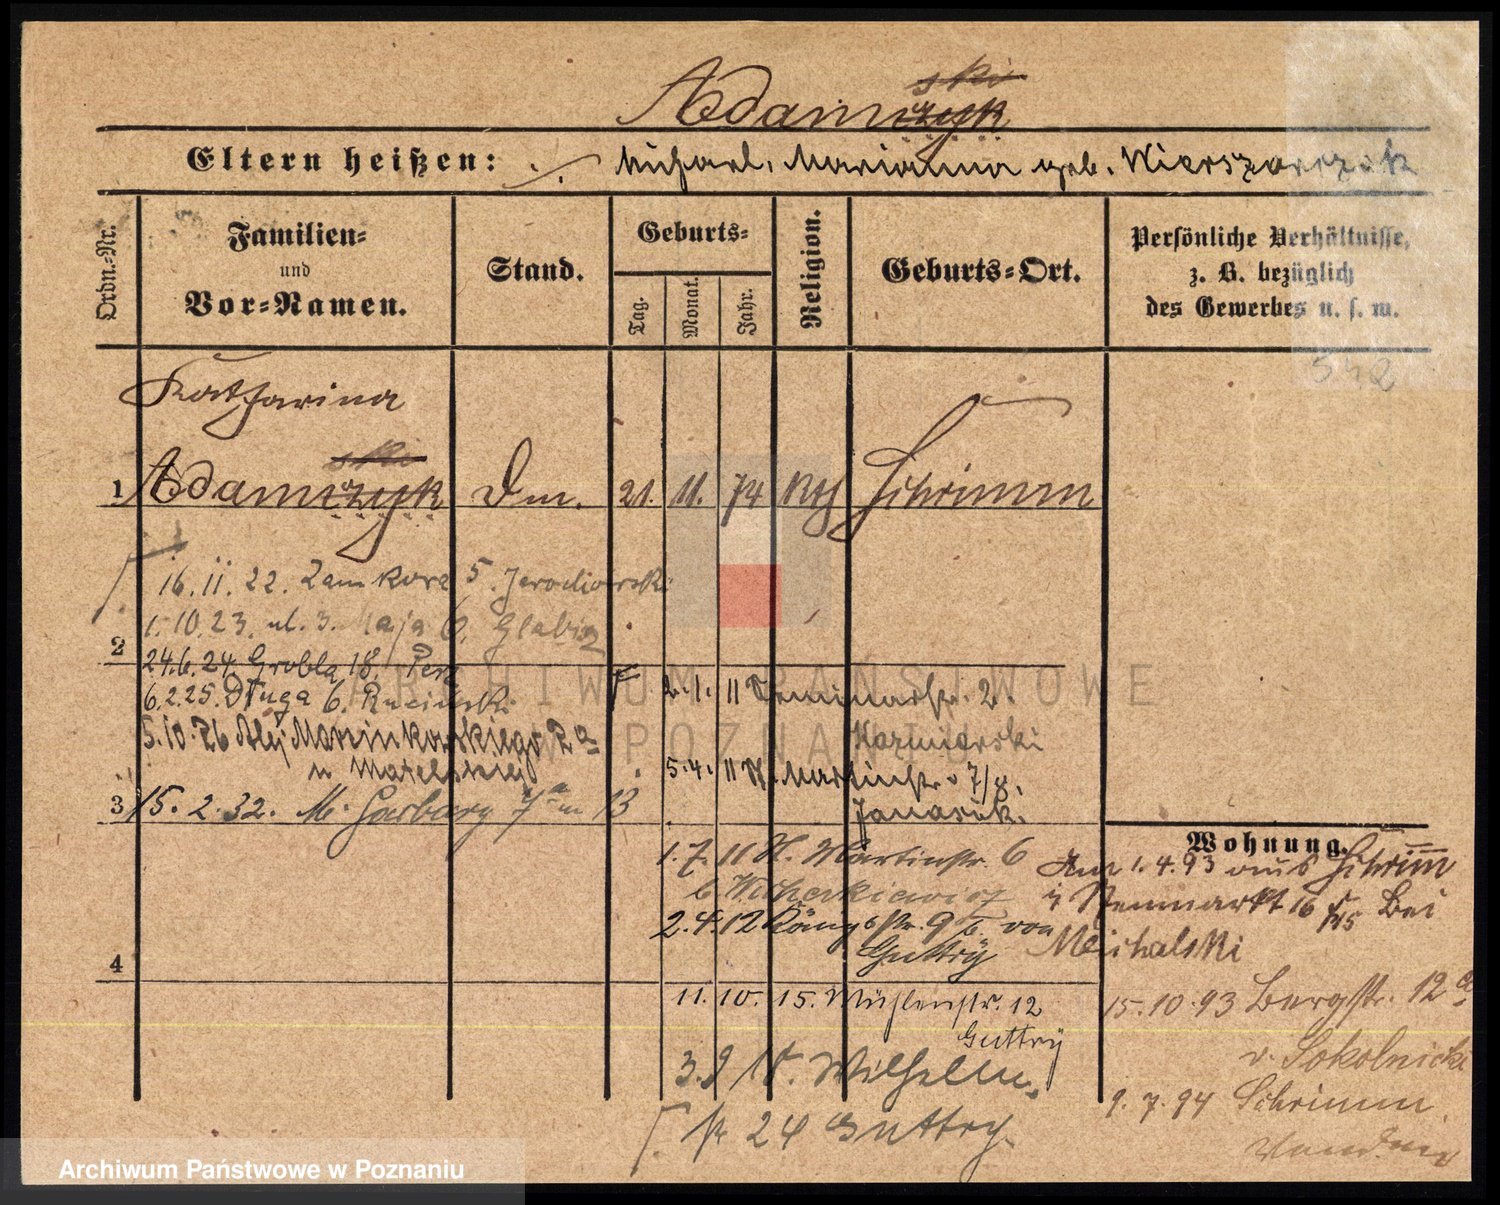 ski
Adamczyk
Eltern heißen: Michael, Marianna geb. Wierszarczak
Ordn.-Nr.
Familien- und Vor-Namen.
Stand.
Geburts-
Tag. Monat. Jahr.
Religion.
Geburts-Ort.
Persönliche Verhältnisse, z. B. bezüglich des Gewerbes u. s. w.
542
Katharina
ski
1 Adamczyk Dm. 21. 11. 74 kth Schrimm
16. 11. 22. Zamkowa 5.
1. 10. 23. ul. 3. Maja 6.
2
24.6.24. Grobla 18.
6.2.25. Długa 6. Ruciński
5.10.26 Alej Marcinkowskiego 2a
3 15. 2. 32. M. Garbary 7a m 13
2. 1. 11 Seminarstr. 2.
Kazmierski
5. 4. 11 St. Martinstr. 7/8.
1. 7. 11 St. Martinstr. 6
b
2. 4. 12 Königstr. 9 b. von
Guttry
4
11. 10. 15. Mühlenstr. 12
Guttry
3. 9 18. Wilhelm
str 24 Guttry
Wohnung.
Am 1.4.93 aus Schrimm
Neumarkt 16 bei
Michalski
15.10.93 Bergstr. 12a
v. Sokolnicki
9. 7. 94 Schrimm
ARCHIWUM PAŃSTWOWE
W POZNANIU
Archiwum Państwowe w Poznaniu